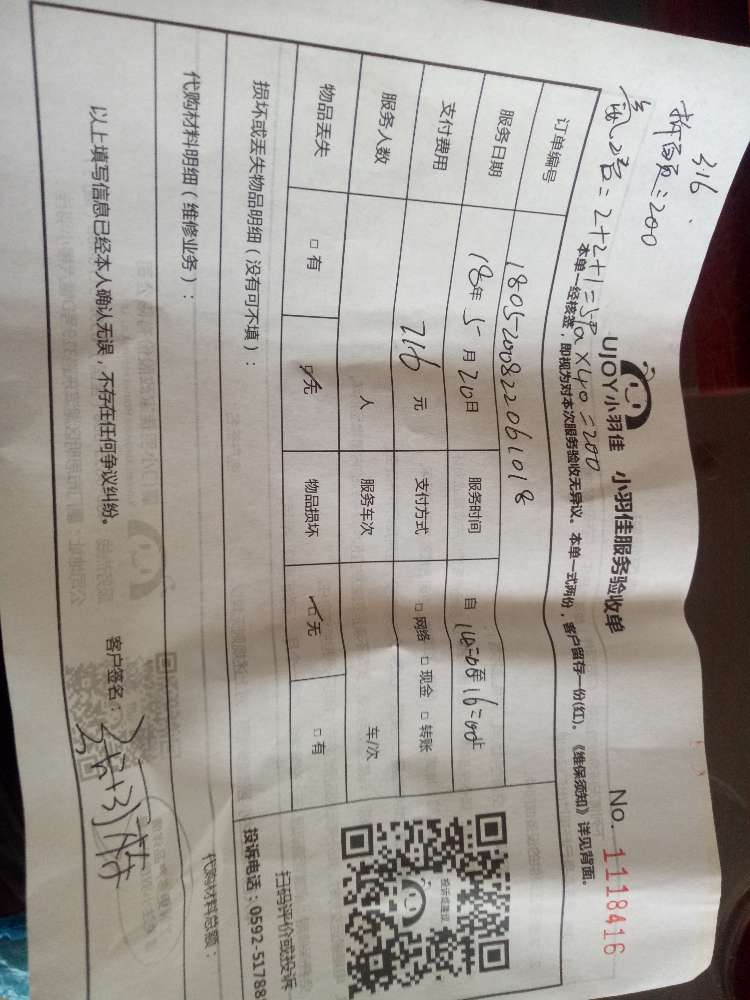 316.
拆家员:200
氟2台=2+2+1=5Pa×40=200
UJOY小羽佳 小羽佳服务验收单 No. 1118416
本单一经核签，即视为对本次服务验收无异议。本单一式两份，客户留存一份(红)。《维保须知》详见背面。
订单编号 180520082206 1018
服务日期 18年 5 月 20日 服务时间 自 14:00至 16:00止
支付费用 316 元 支付方式 □网络 □现金 □转账
服务人数 人 服务车次 车/次
物品丢失 □有 ☑无 物品损坏 ☑无 □有
损坏或丢失物品明细（没有可不填）：
投诉信建议
扫码评价或投诉
投诉电话：0592-51788
代购材料明细（维修业务）：
代购材料总额：
以上填写信息已经本人确认无误，不存在任何争议纠纷。 客户签名：